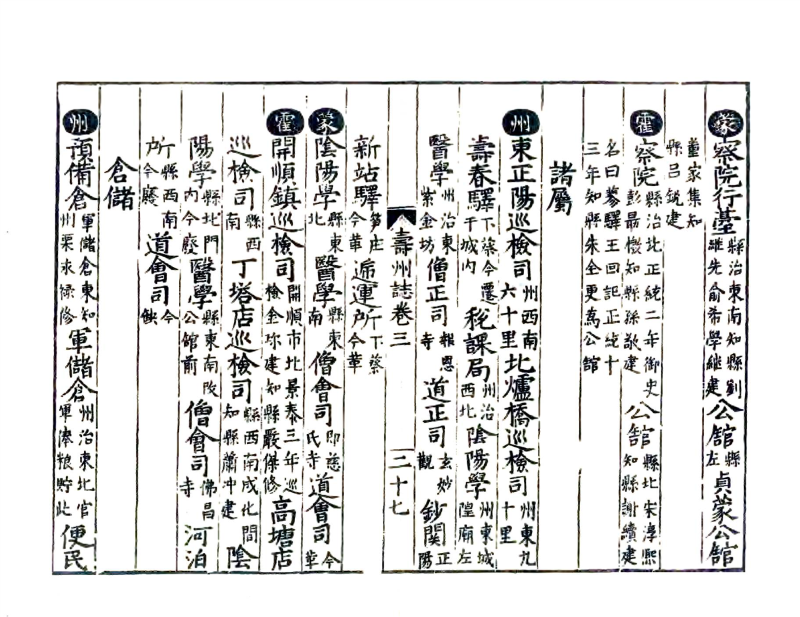 蒙 察院行臺 縣治東南知縣劉継先俞希學継建 公舘 縣左 貞蒙公舘
董家集知縣吕鋭建
霍 察院 縣治北正統二年御史彭勗檄知縣孫敬建 公舘 縣北宋淳熙知縣謝續建
名曰蓼驛王回記正統十三年知縣朱全更爲公舘
諸屬
州 東正陽巡檢司 州西南六十里 北爐橋巡檢司 州東九十里
壽春驛 下蔡今遷于城内 稅課局 州治西北 陰陽學 州東城隍廟左
醫學 州治東紫金坊 僧正司 報恩寺 道正司 玄妙觀 鈔関 正陽
壽州誌卷三 二十七
新站驛 笋庄今革 逓運所 下蔡今革
蒙 陰陽學 縣東北 醫學 縣東南 僧會司 即慈氏寺 道會司 今革
霍 開順鎮巡檢司 開順市北景泰三年巡檢金珎建知縣嚴傑修 高塘店
巡檢司 縣西南 丁塔店巡檢司 縣西南成化間知縣蕭冲建 陰
陽學 縣北門内今廢 醫學 縣東南改公舘前 僧會司 佛昌寺 河泊
所 縣西南今廢 道會司 今缺
倉儲
州 預備倉 軍儲倉東知州栗永禄修 軍儲倉 州治東北官軍俸粮貯此 便民